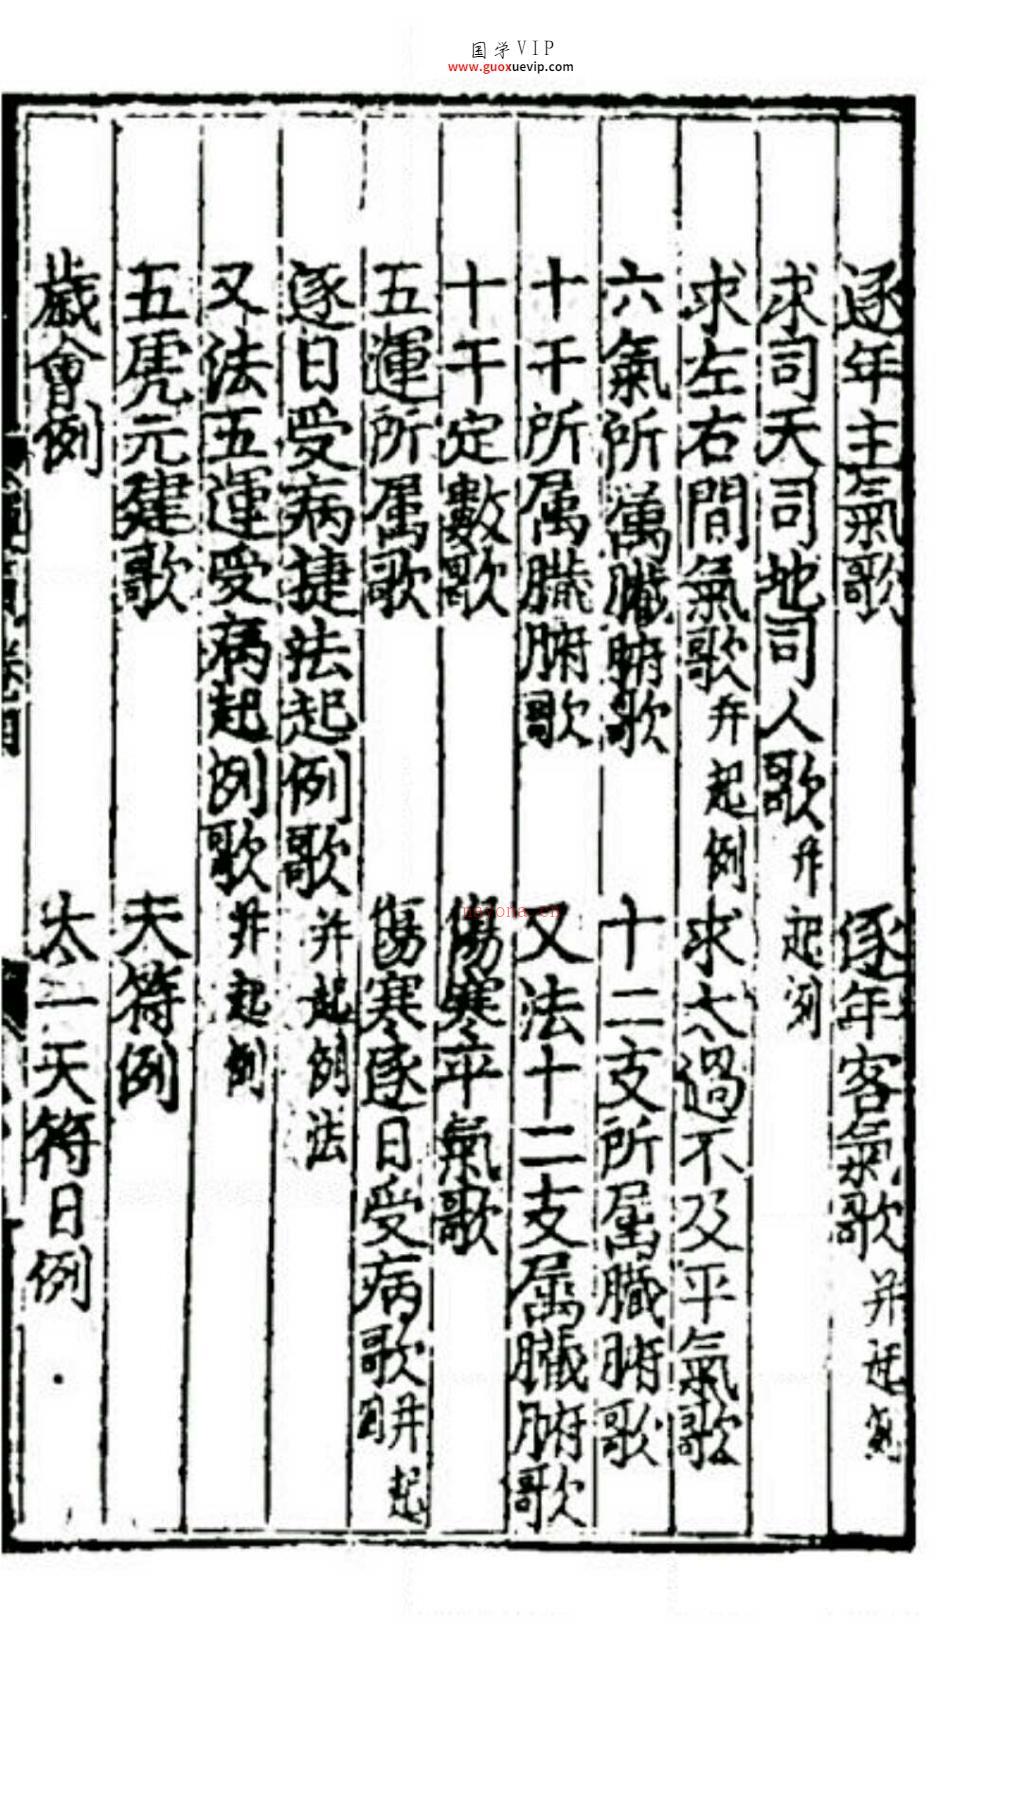 国学VIP
www.guoxuevip.com
逐年主氣歌 逐年客氣歌 并起例
求司天司地司人歌 并起例
求左右間氣歌 并起例 求太過不及平氣歌
六氣所属臟腑歌 十二支所属臟腑歌
十干所属臟腑歌 又法十二支属臟腑歌
十干定數歌 傷寒平氣歌
五運所属歌 傷寒逐日受病歌 并起例
逐日受病捷法起例歌 并起例法
又法五運受病起例歌 并起例
五虎元建歌 天符例
歲會例 太一天符日例